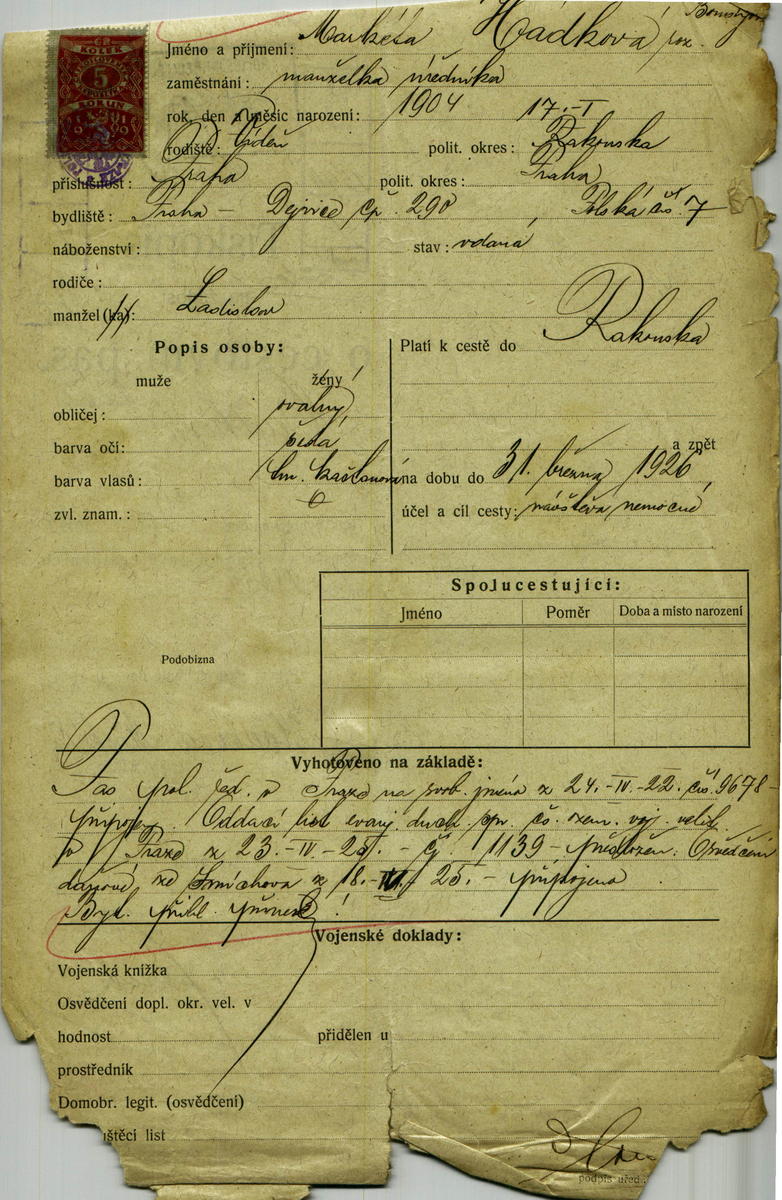 KOLEK
5
KORUN
1919
Jméno a příjmení: Markéta Hádková roz.
zaměstnání: manželka úředníka
rok, den a měsíc narození: 1904 17.-I
rodiště: Vídeň polit. okres: Rakousko
příslušnost: Praha polit. okres: Praha
bydliště: Praha - Dejvice čp. 290 Polská čís. 7
náboženství: stav: vdaná
rodiče:
manžel (ka): Ladislav
Popis osoby: Platí k cestě do Rakouska
muže ženy
obličej: oválný
barva očí: šedá a zpět
barva vlasů: tm. kaštanová na dobu do 31. března 1926
zvl. znam.: účel a cíl cesty: návštěva nemocné
Spolucestující:
Jméno Poměr Doba a místo narození
Podobizna
Vyhotoveno na základě:
Pas pol. řed. v Praze na svob. jméno z 24.-IV.-22. čís. 9678-
připojen. Oddací list evang. duch. spr. čs. zem. voj. velit.
v Praze z 23.-IV-25.- čj. 1139- předložen. Osvědčení
daňové ze Smíchova z 18.- 25.- připojeno.
Bytl. přihl.
Vojenské doklady:
Vojenská knížka
Osvědčení dopl. okr. vel. v
hodnost přidělen u
prostředník
Domobr. legit. (osvědčení)
štěcí list
podpis úřed.: